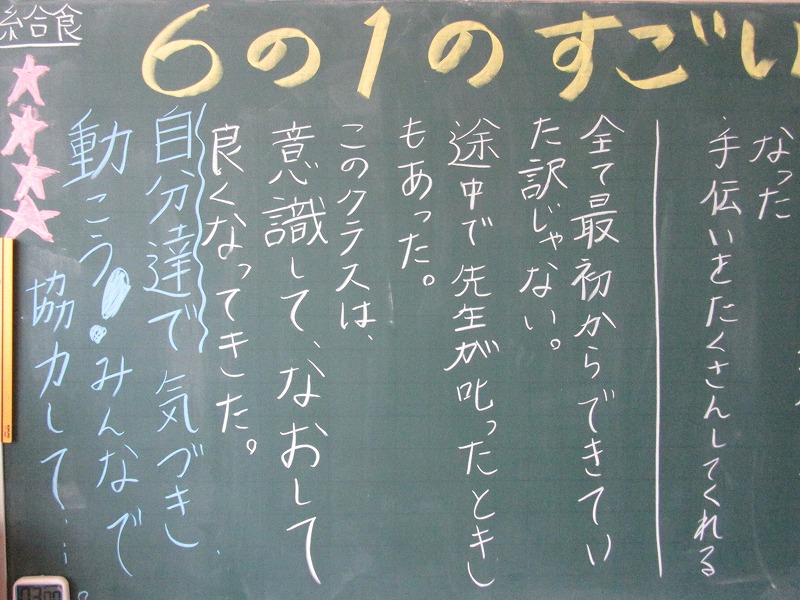 給食
6の1のすごい
なった
手伝いをたくさんしてくれる
全て最初からできてい
た訳じゃない。
途中で先生が叱ったときし
もあった。
このクラスは、
意識して、なおして
良くなってきた。
自分達で気づきし、
動こう!みんなで
協力して…。